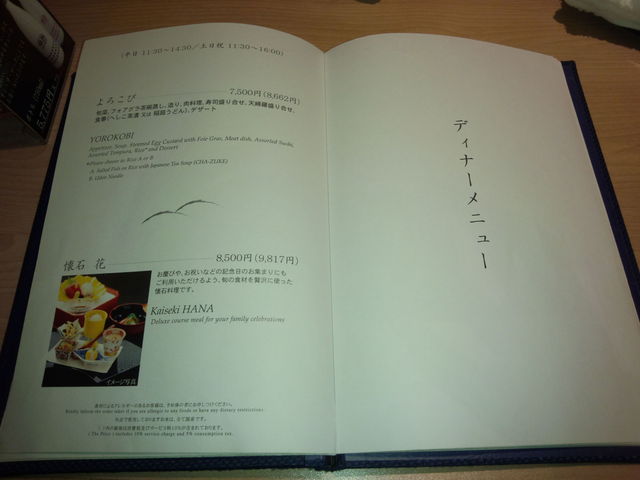 (平日 11:30～14:30／土日祝 11:30～16:00)
よろこび 7,500円(8,662円)
旬菜、フォアグラ茶碗蒸し、造り、肉料理、寿司盛り合せ、天婦羅盛り合せ、
食事(へしこ茶漬 又は 稲庭うどん)、デザート
YOROKOBI
Appetizer, Soup, Steamed Egg Custard with Foie Gras, Meat dish, Assorted Sushi,
Assorted Tempura, Rice* and Dessert
*Please choose to Rice A or B
A. Salted Fish on Rice with Japanese Tea Soup (CHA-ZUKE)
B. Udon Noodle
懐石 花 8,500円(9,817円)
お慶びや、お祝いなどの記念日のお集まりにも
ご利用いただけるよう、旬の食材を贅沢に使った
懐石料理です。
Kaiseki HANA
Deluxe course meal for your family celebrations
イメージ写真
食材によるアレルギーのあるお客様は、予め係の者にお申しつけください。
Kindly inform the order taker if you are allergic to any foods or have any dietary restrictions.
当店で使用しておりますお米は、全て国産です。
( )内の価格は消費税及びサービス料10%が含まれております。
( The Price ) includes 10% service charge and 5% consumption tax.
ディナーメニュー